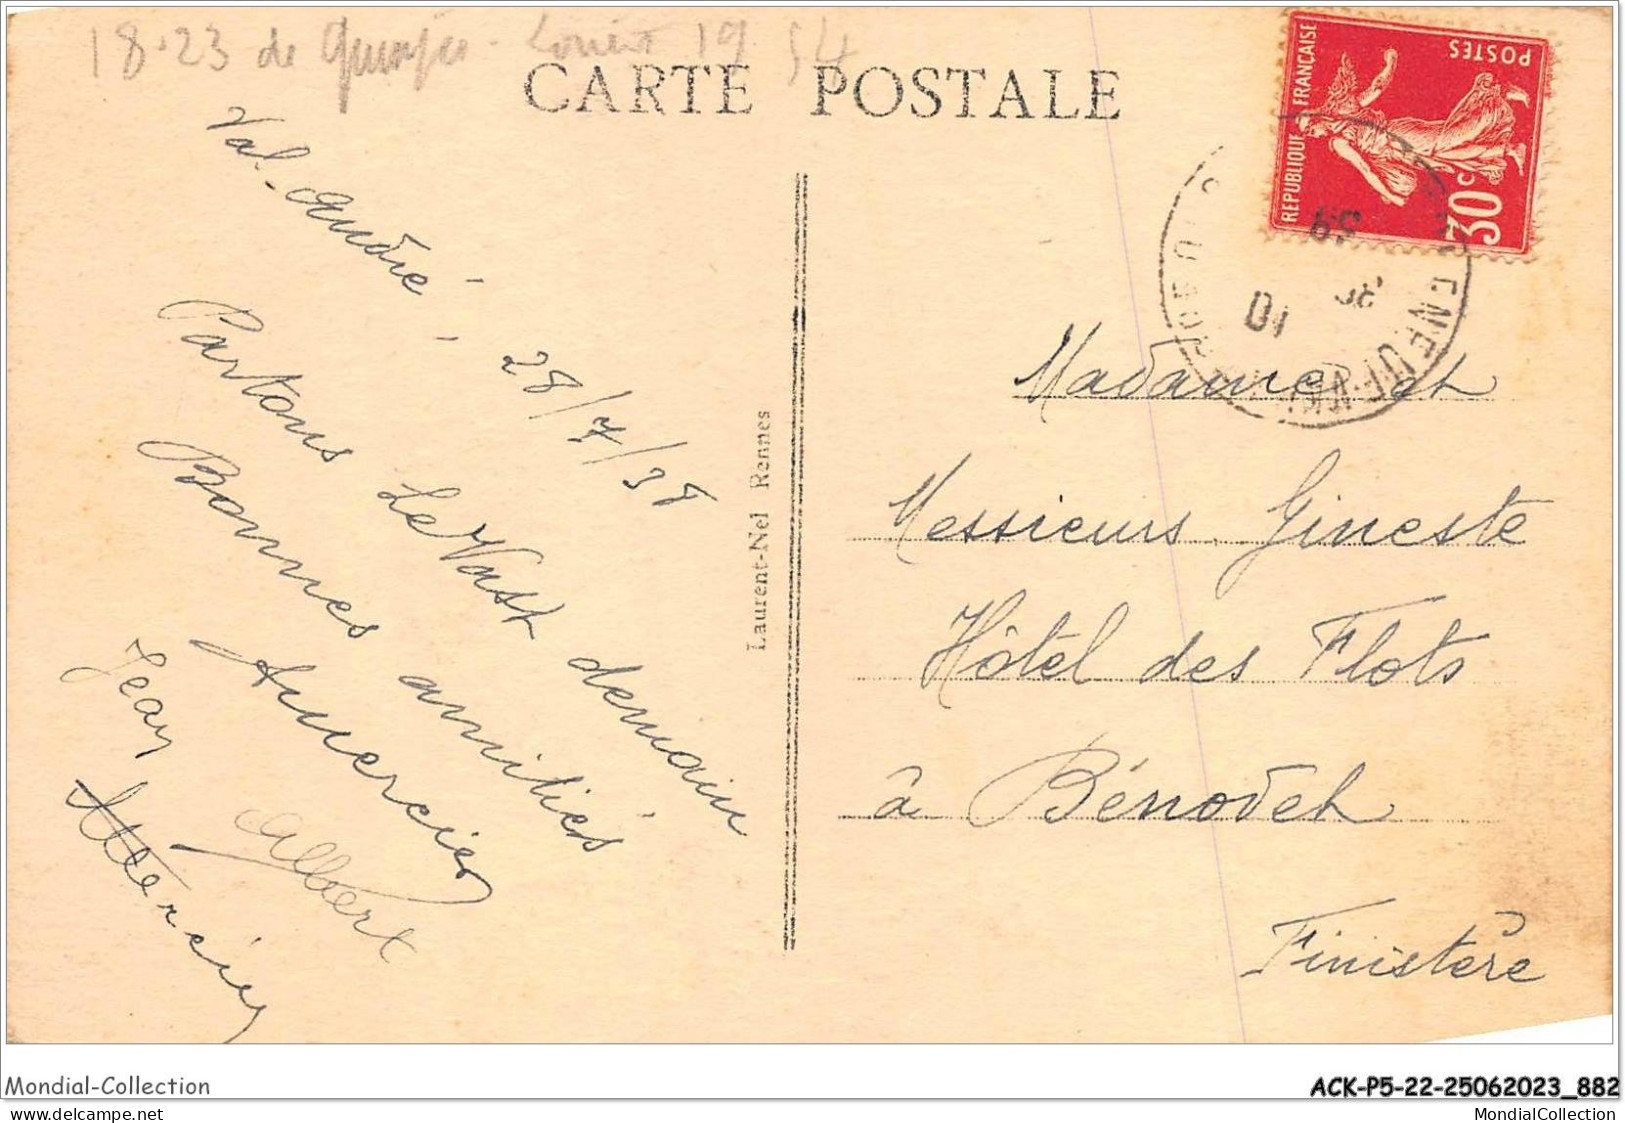 18.23 de Quimper - Lorient 19 54
CARTE POSTALE
REPUBLIQUE FRANÇAISE
POSTES
30c
Val-André, 28/7/38
Partons Le Vast demain
Bonnes amitiés
AMercier
Jean
Albert
Mercier
Laurent-Nel Rennes
Madame et
Messieurs Gineste
Hôtel des Flots
à Bénodet
Finistère
Mondial-Collection
ACK-P5-22-25062023_882
MondialCollection